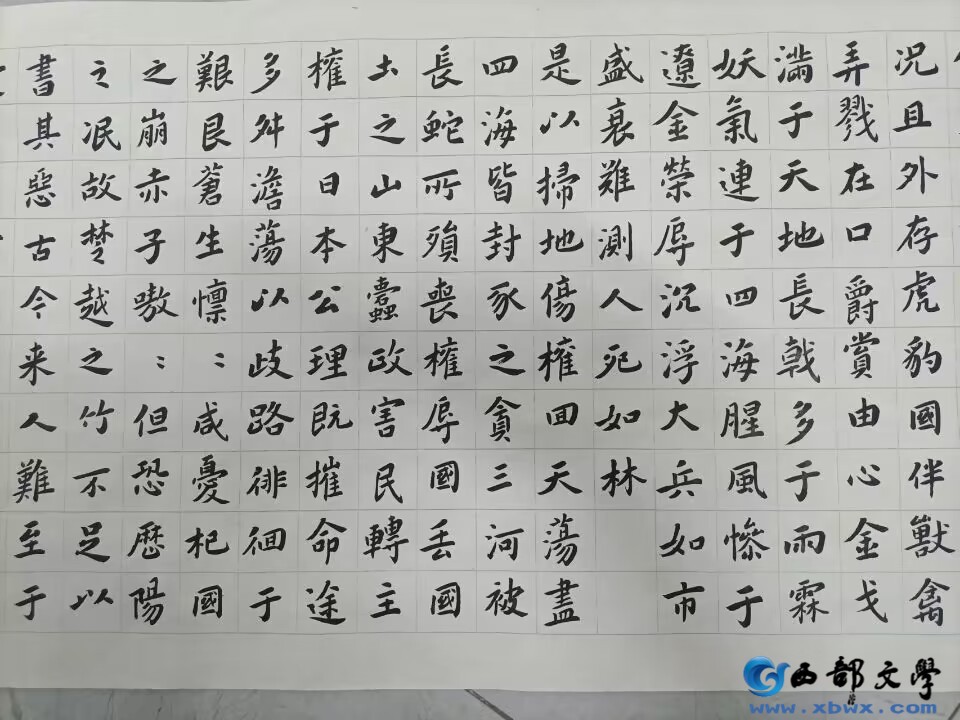 况且外存虎豹國伴獸禽
弄戮在口爵賞由心金戈
满于天地長戟多于雨霖
妖氣連于四海腥風慘于
遼金榮辱沉浮大兵如市
盛衰難測人死如林
是以掃地傷權回天蕩盡
四海皆封豕之貪三河被
長蛇所殞喪權辱國丢國
土之山東蠹政害民轉主
權于日本公理既摧命途
多舛澹蕩以歧路徘徊于
艱艮蒼生懍:咸憂杞國
之崩赤子嗷:但恐歷陽
之泯故楚越之竹不足以
書其惡古今来人難至于
西部文學
www.xbwx.com